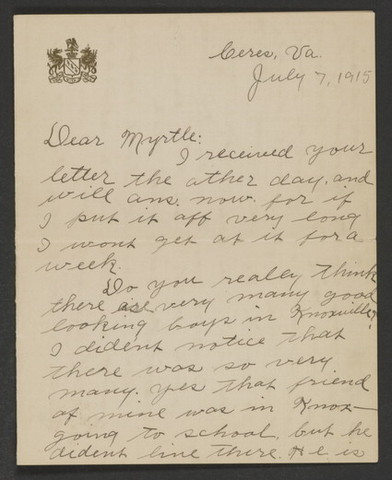 Ceres, Va.
July 7, 1915
Dear Myrtle:
I received your
letter the other day. and
will ans. now. for if
I put it off very long
I wont get at it for a
week.
Do you really think
there are very many good
looking boys in Knoxville?
I dident notice that
there was so very
many. yes that friend
of mine was in Knox—
going to school. but he
dident live there. He is